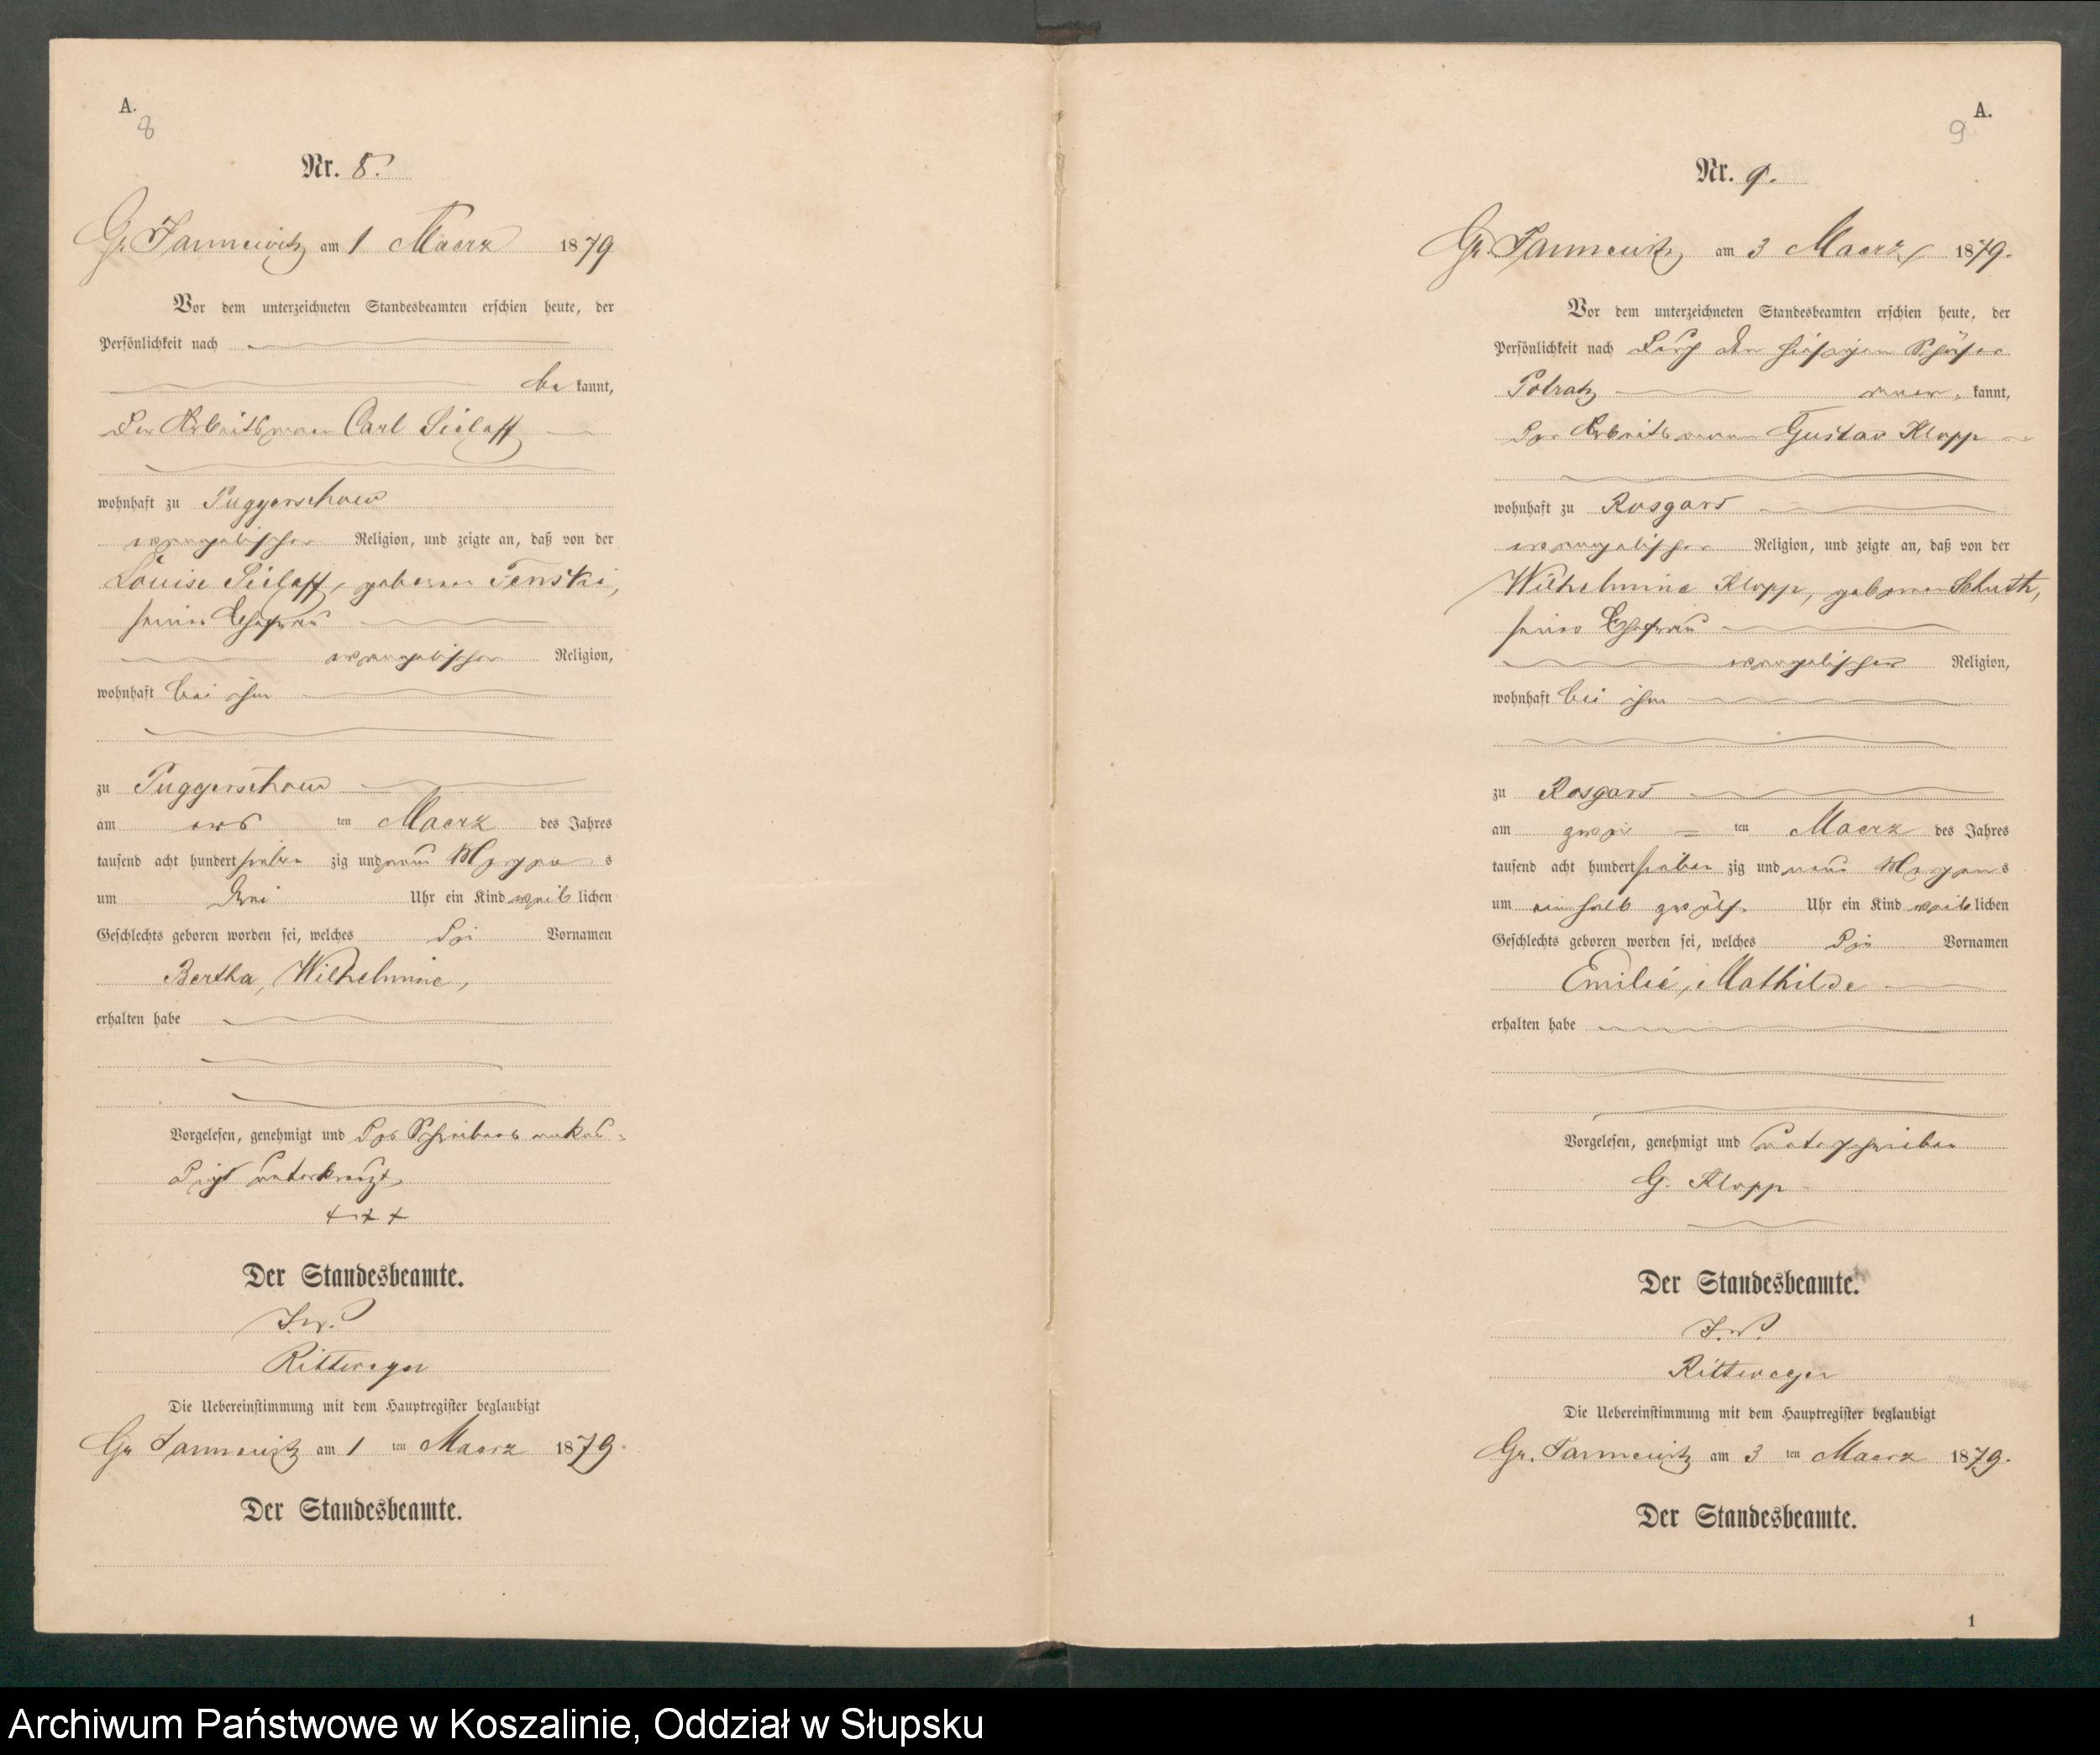 A.
8
Nr. 8.
Gr. Jannewitz am 1 Maerz 1879
Vor dem unterzeichneten Standesbeamten erschien heute, der
Persönlichkeit nach
be kannt,
der Arbeitsmann Carl Sielaff
wohnhaft zu Puggerschow
evangelischer Religion, und zeigte an, daß von der
Louise Sielaff, geborene Tenski,
seiner Ehefrau
evangelischer Religion,
wohnhaft bei ihm
zu Puggerschow
am ers ten Maerz des Jahres
tausend acht hundert sieben zig und neun Morgens
um drei Uhr ein Kind weib lichen
Geschlechts geboren worden sei, welches die Vornamen
Bertha, Wilhelmine,
erhalten habe
Vorgelesen, genehmigt und des Schreibens unkun-
digt unterkreuzt
+++
Der Standesbeamte.
J.V.
Rittweger
Die Uebereinstimmung mit dem Hauptregister beglaubigt
Gr Jannewitz am 1 ten Maerz 1879.
Der Standesbeamte.
A.
9
Nr. 9.
Gr. Jannewitz am 3 Maerz 1879.
Vor dem unterzeichneten Standesbeamten erschien heute, der
Persönlichkeit nach durch den hiesigen Schäfer
Potratz aner kannt,
der Arbeitsmann Gustav Klopp
wohnhaft zu Rosgars
evangelischer Religion, und zeigte an, daß von der
Wilhelmine Klopp, geborene Schuth,
seiner Ehefrau
evangelischer Religion,
wohnhaft bei ihm
zu Rosgars
am zwei = ten Maerz des Jahres
tausend acht hundert sieben zig und neun Morgens
um ein halb zwölf Uhr ein Kind weib lichen
Geschlechts geboren worden sei, welches die Vornamen
Emilie, Mathilde
erhalten habe
Vorgelesen, genehmigt und unterschrieben
G. Klopp
Der Standesbeamte.
J.V.
Rittweger
Die Uebereinstimmung mit dem Hauptregister beglaubigt
Gr. Jannewitz am 3 ten Maerz 1879.
Der Standesbeamte.
1
Archiwum Państwowe w Koszalinie, Oddział w Słupsku